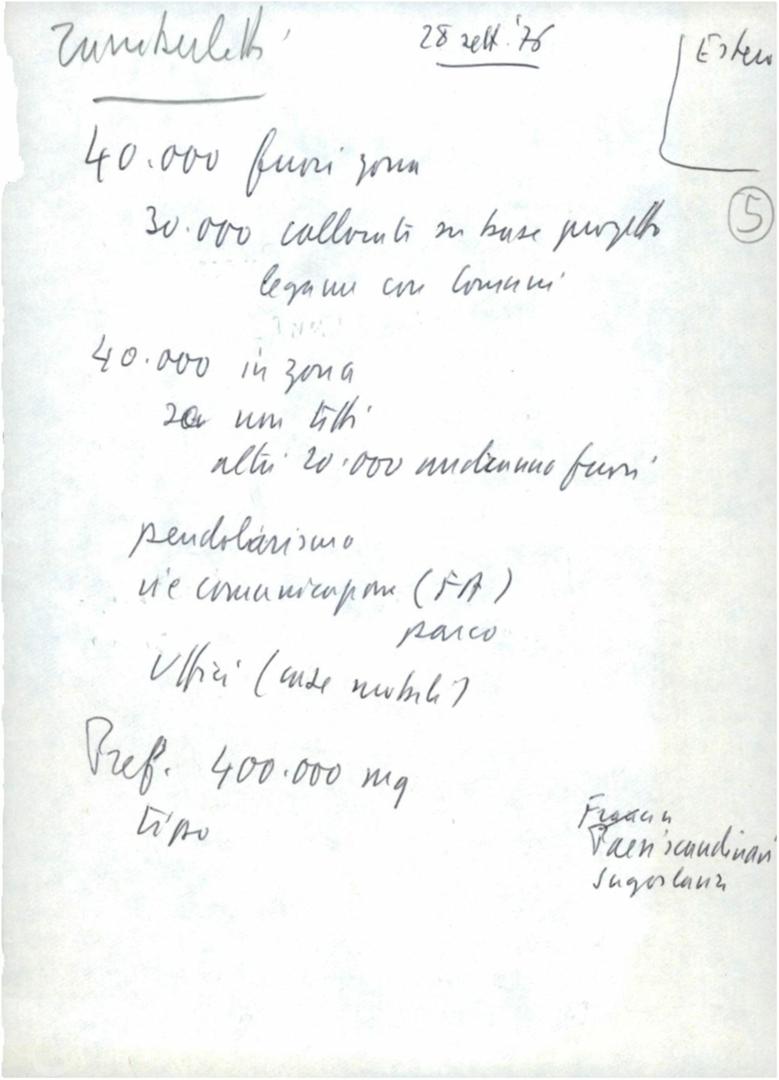 Zamberletti
28 sett. '76
Estero
5
40.000 fuori zona
30.000 collocati su base progetto
legami con Comuni
40.000 in zona
20 non tetti
altri 20.000 andranno fuori
pendolarismo
vie comunicazione (FA)
parco
Uffici (case mobili)
Pref. 400.000 mq
tipo
Francia
Paesi scandinavi
Jugoslavia